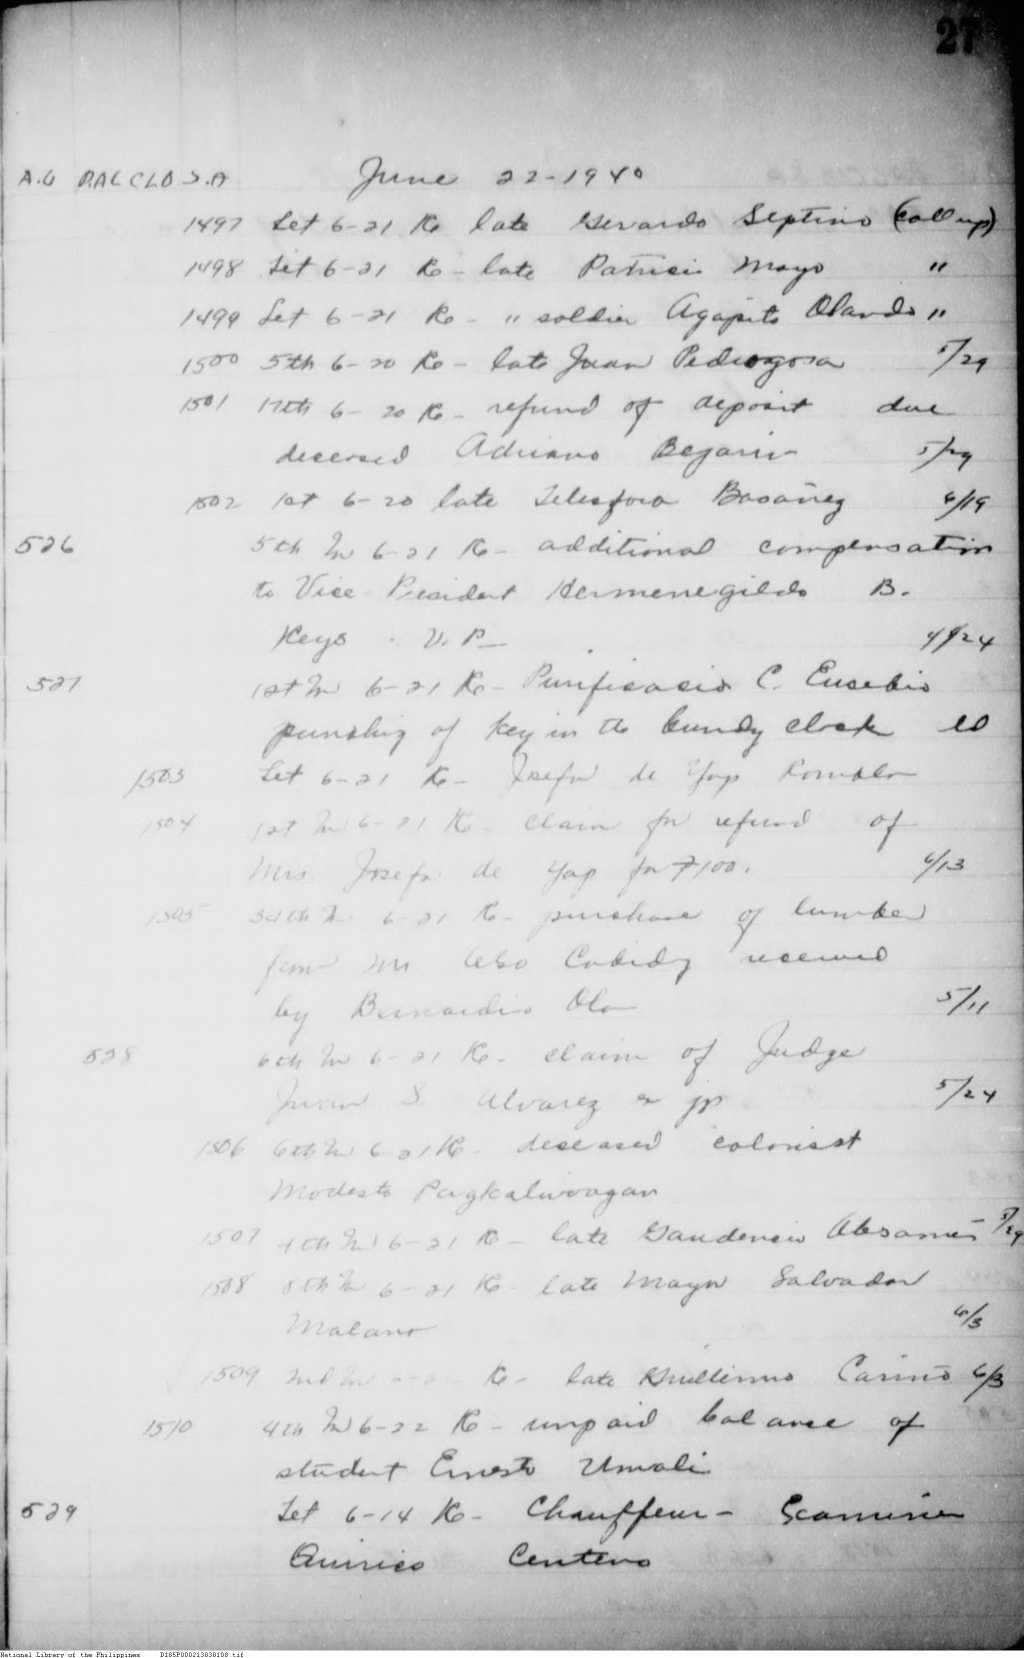 27
A.G P.A.C CLD S.A June 22-1940
1497 Let 6-21 Re late Gerardo Septimo (call up)
1498 Let 6-21 Re - late Patricio Mayo "
1499 Let 6-21 Re - " soldier Agapito Olando "
1500 5th 6-20 Re - late Juan Pedrogosa 5/29
1501 17th 6-20 Re - refund of deposit due
deceased Adriano Begarin 5/29
1502 1st 6-20 late Telesfora Basañez 6/19
526 5th In 6-21 Re - additional compensation
to Vice President Hermenegildo B.
Keys . V. P - 4/24
527 1st In 6-21 Re - Purificacio C. Eusebio
punching of key in the bundy clock
1503 Let 6-21 Re - Josefa de Yap Romulo
1504 1st In 6-21 Re - claim for refund of
Mrs Josefa de Yap for ₱100. 6/13
1505 34th In 6-21 Re - purchase of lumber
from Mr received
by Bernardino Ola 5/11
528 6th In 6-21 Re - claim of Judge
Juan S. Alvarez as jp 5/24
1506 6th In 6-21 Re - deceased colonist
Modesto Pagkaliwagan
1507 4th In 6-21 Re - late Gaudencio 5/29
1508 8th In 6-21 Re - late Mayor Salvador
Malano 6/3
1509 2nd In Re - late Guillermo Carino 6/3
1510 4th In 6-22 Re - unpaid balance of
student Ernesto Umali
529 Let 6-14 Re - Chauffeur -
Quirico Centeno
National Library of the Philippines D185P000213830108.tif